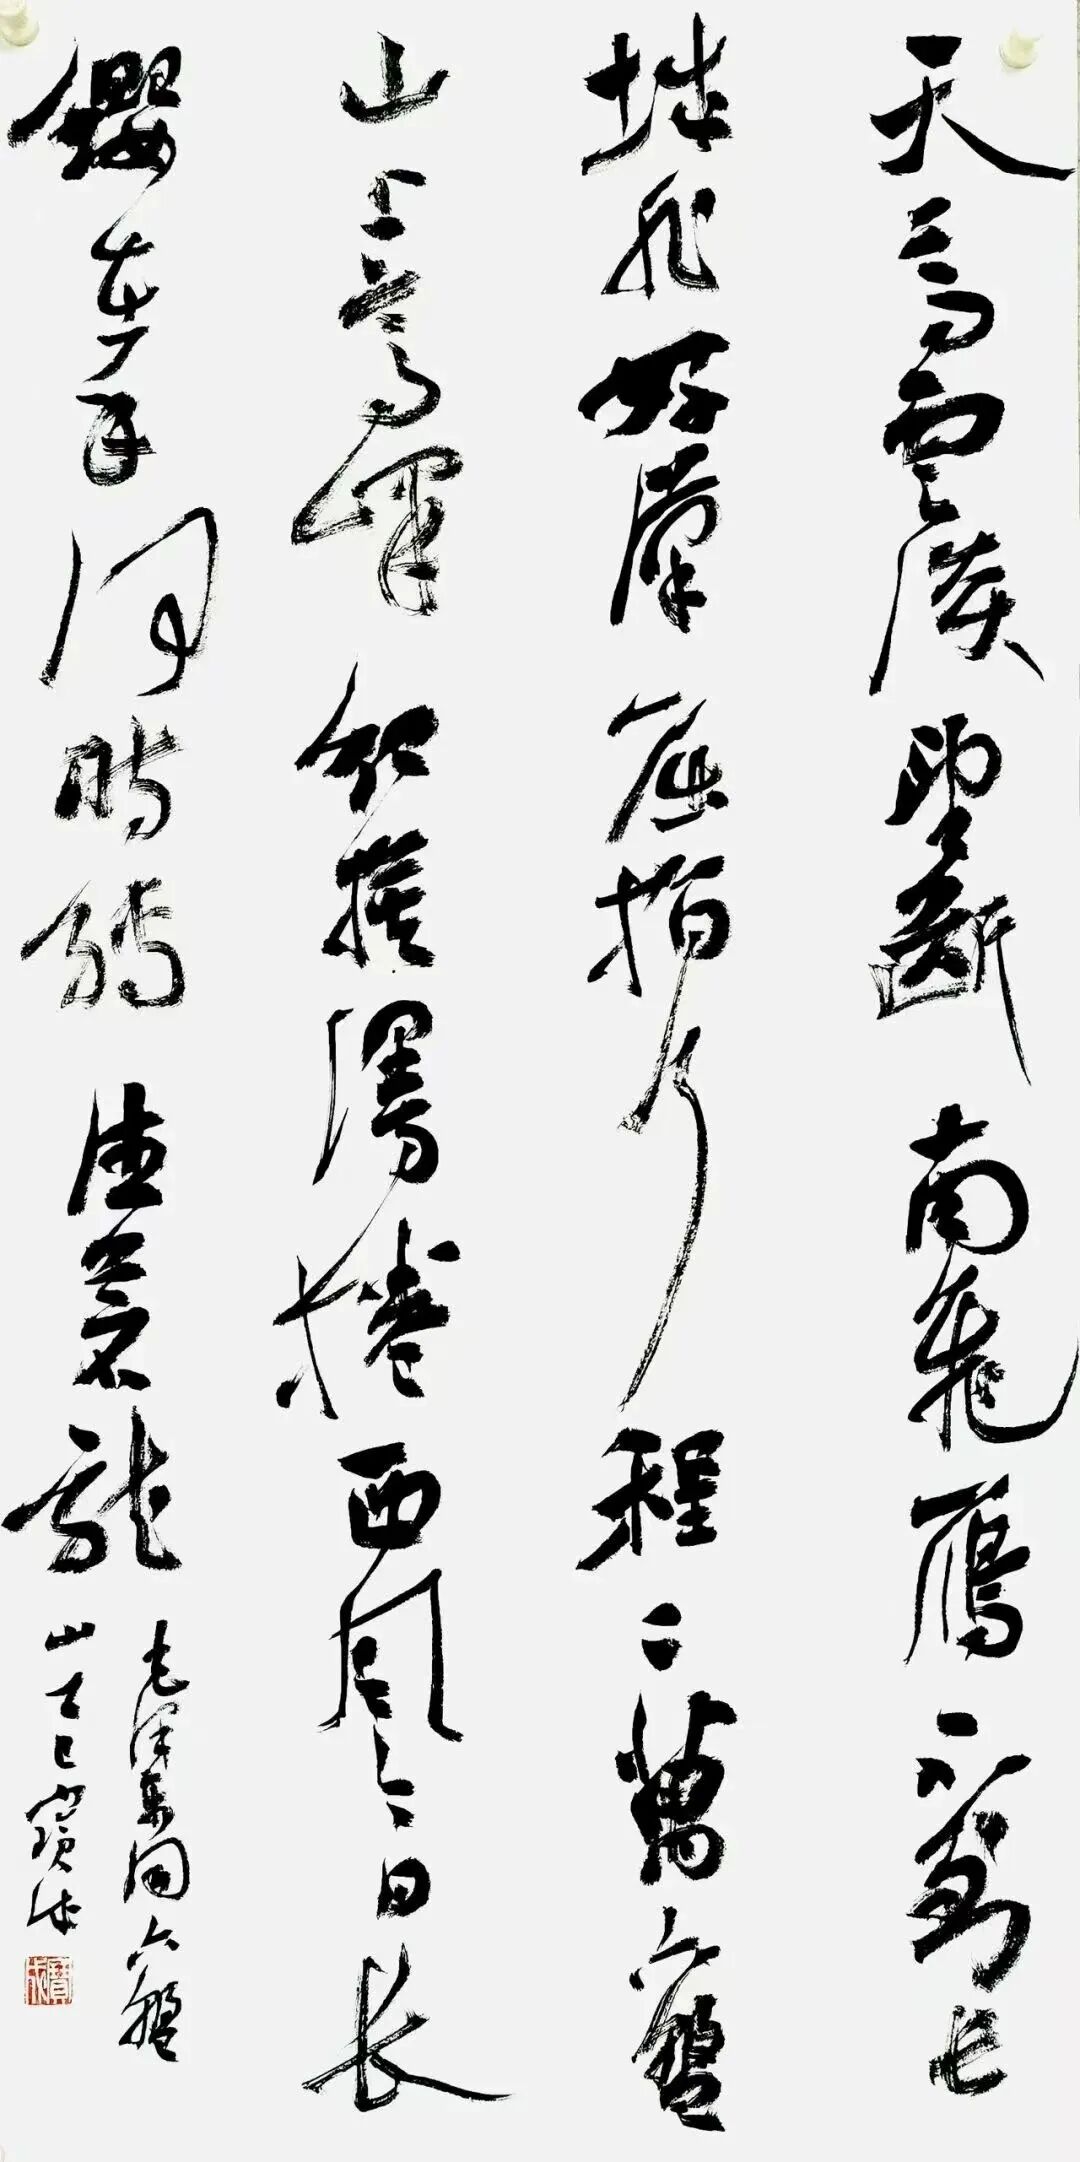 天高雲淡望斷南飛雁不到长
城非好漢屈指行程二萬六盤
山上高峰紅旗漫捲西風今日长
纓在手何時縛住蒼龍
毛澤東詞六盤
山乙巳寶成
寶成